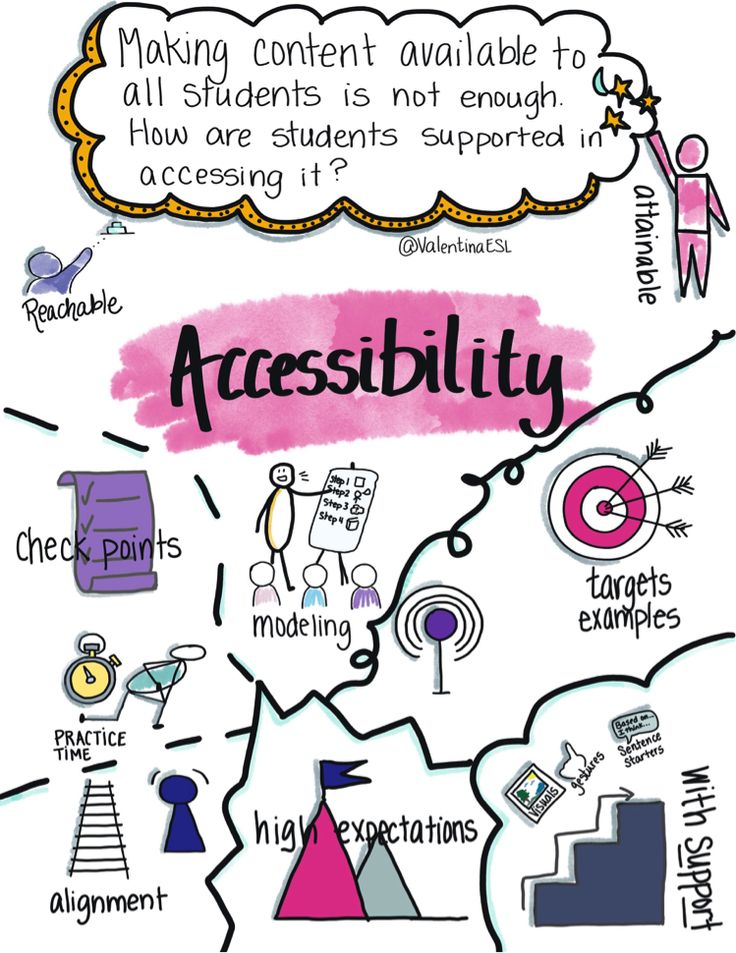 Making content available to
all students is not enough.
How are students supported in
accessing it?
@ValentinaESL
attainable
Reachable
Accessibility
Check points
Step 1
Step 2
Step 3
Step 4
modeling
targets
examples
PRACTICE
TIME
alignment
high expectations
Based on...
I think...
Sentence
Starters
gestures
Visuals
With Support